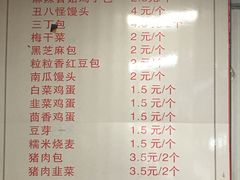 丑八怪馒头 4元/个
三丁包 2元/个
梅干菜 2元/个
黑芝麻包 2元/个
粒粒香红豆包 2元/个
南瓜馒头 2元/个
白菜鸡蛋 1.5元/个
韭菜鸡蛋 1.5元/个
茴香鸡蛋 1.5元/个
豆芽 1.5元/个
糯米烧麦 1.5元/个
猪肉包 3.5元/2个
猪肉韭菜 3.5元/2个